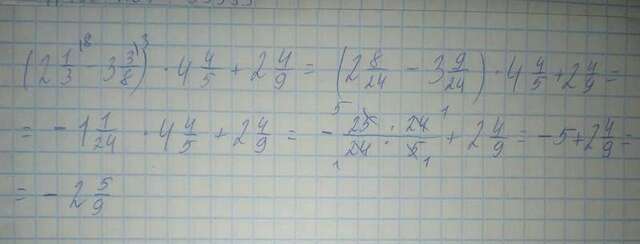 (2 1/3 - 3 3/8) · 4 4/5 + 2 4/9 = (2 8/24 - 3 9/24) · 4 4/5 + 2 4/9 =
= - 1 1/24 · 4 4/5 + 2 4/9 = - 25/24 : 24/5 + 2 4/9 = - 5 + 2 4/9 =
= - 2 5/9